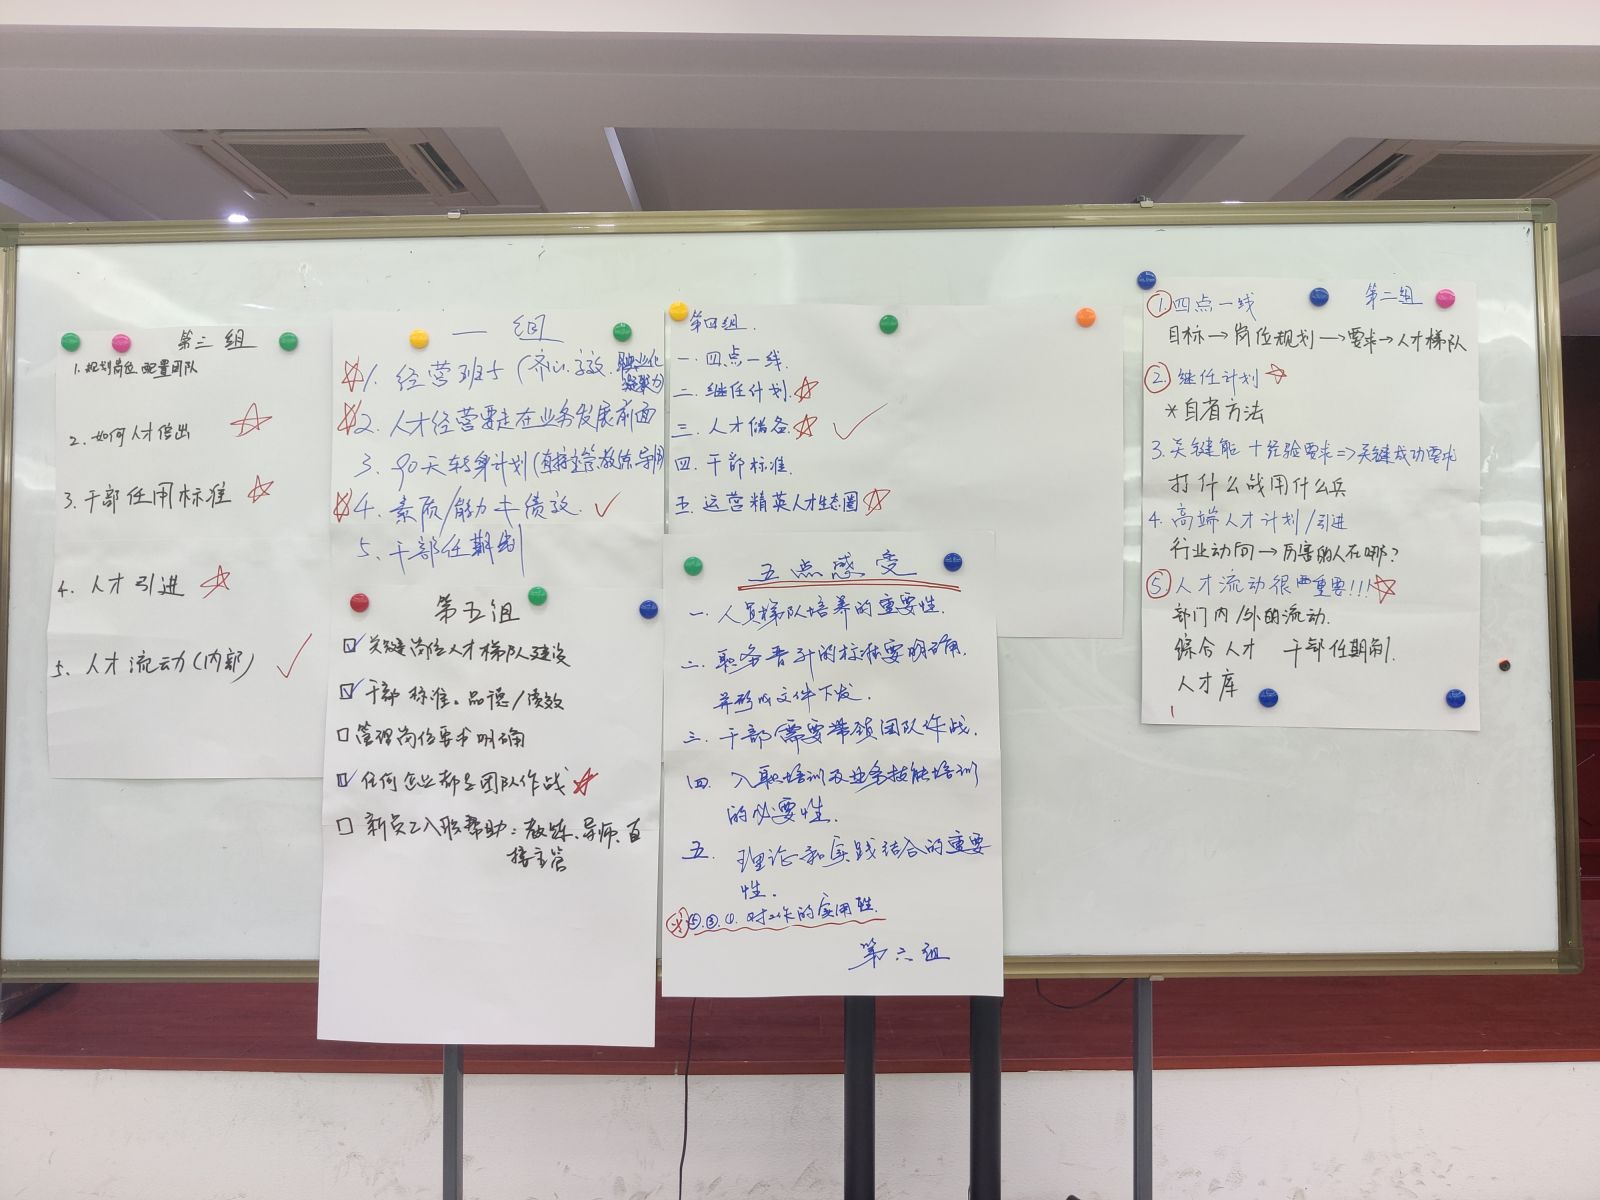 第三组
1. 规划岗位 配置团队
2. 如何人才倍出
3. 干部任用标准
4. 人才引进
5. 人才流动(内部)
一组
1. 经营班子(齐心.高效.职业化
凝聚力)
2. 人才经营要走在业务发展前面
3. 90天转身计划(直接主管、教练、导师)
4. 素质/能力+绩效.
5. 干部任期制
第五组
关键岗位人才梯队建设
干部 标准. 品德/绩效
管理岗位要求明确
任何企业都是团队作战
新员工入职帮助: 教练、导师、直
接主管
第四组.
一. 四点一线.
二. 继任计划.
三. 人才储备.
四. 干部标准.
五. 运营精英人才生态圈
五点感受
一. 人员梯队培养的重要性.
二. 职务晋升的标准要明确.
并形成文件下发.
三. 干部需要带领团队作战.
四. 入职培训及业务技能培训
的必要性.
五. 理论和实践结合的重要
性.
⑤.③.①. 对工作的实用性.
第六组
第二组
1. 四点一线
目标→岗位规划→要求→人才梯队
2. 继任计划
*自省方法
3. 关键能+经验要求=>关键成功要求
打什么战用什么兵
4. 高端人才计划/引进
行业动向→厉害的人在哪?
5 人才流动很重要!!!
部门内/外的流动.
综合人才 干部任期制.
人才库